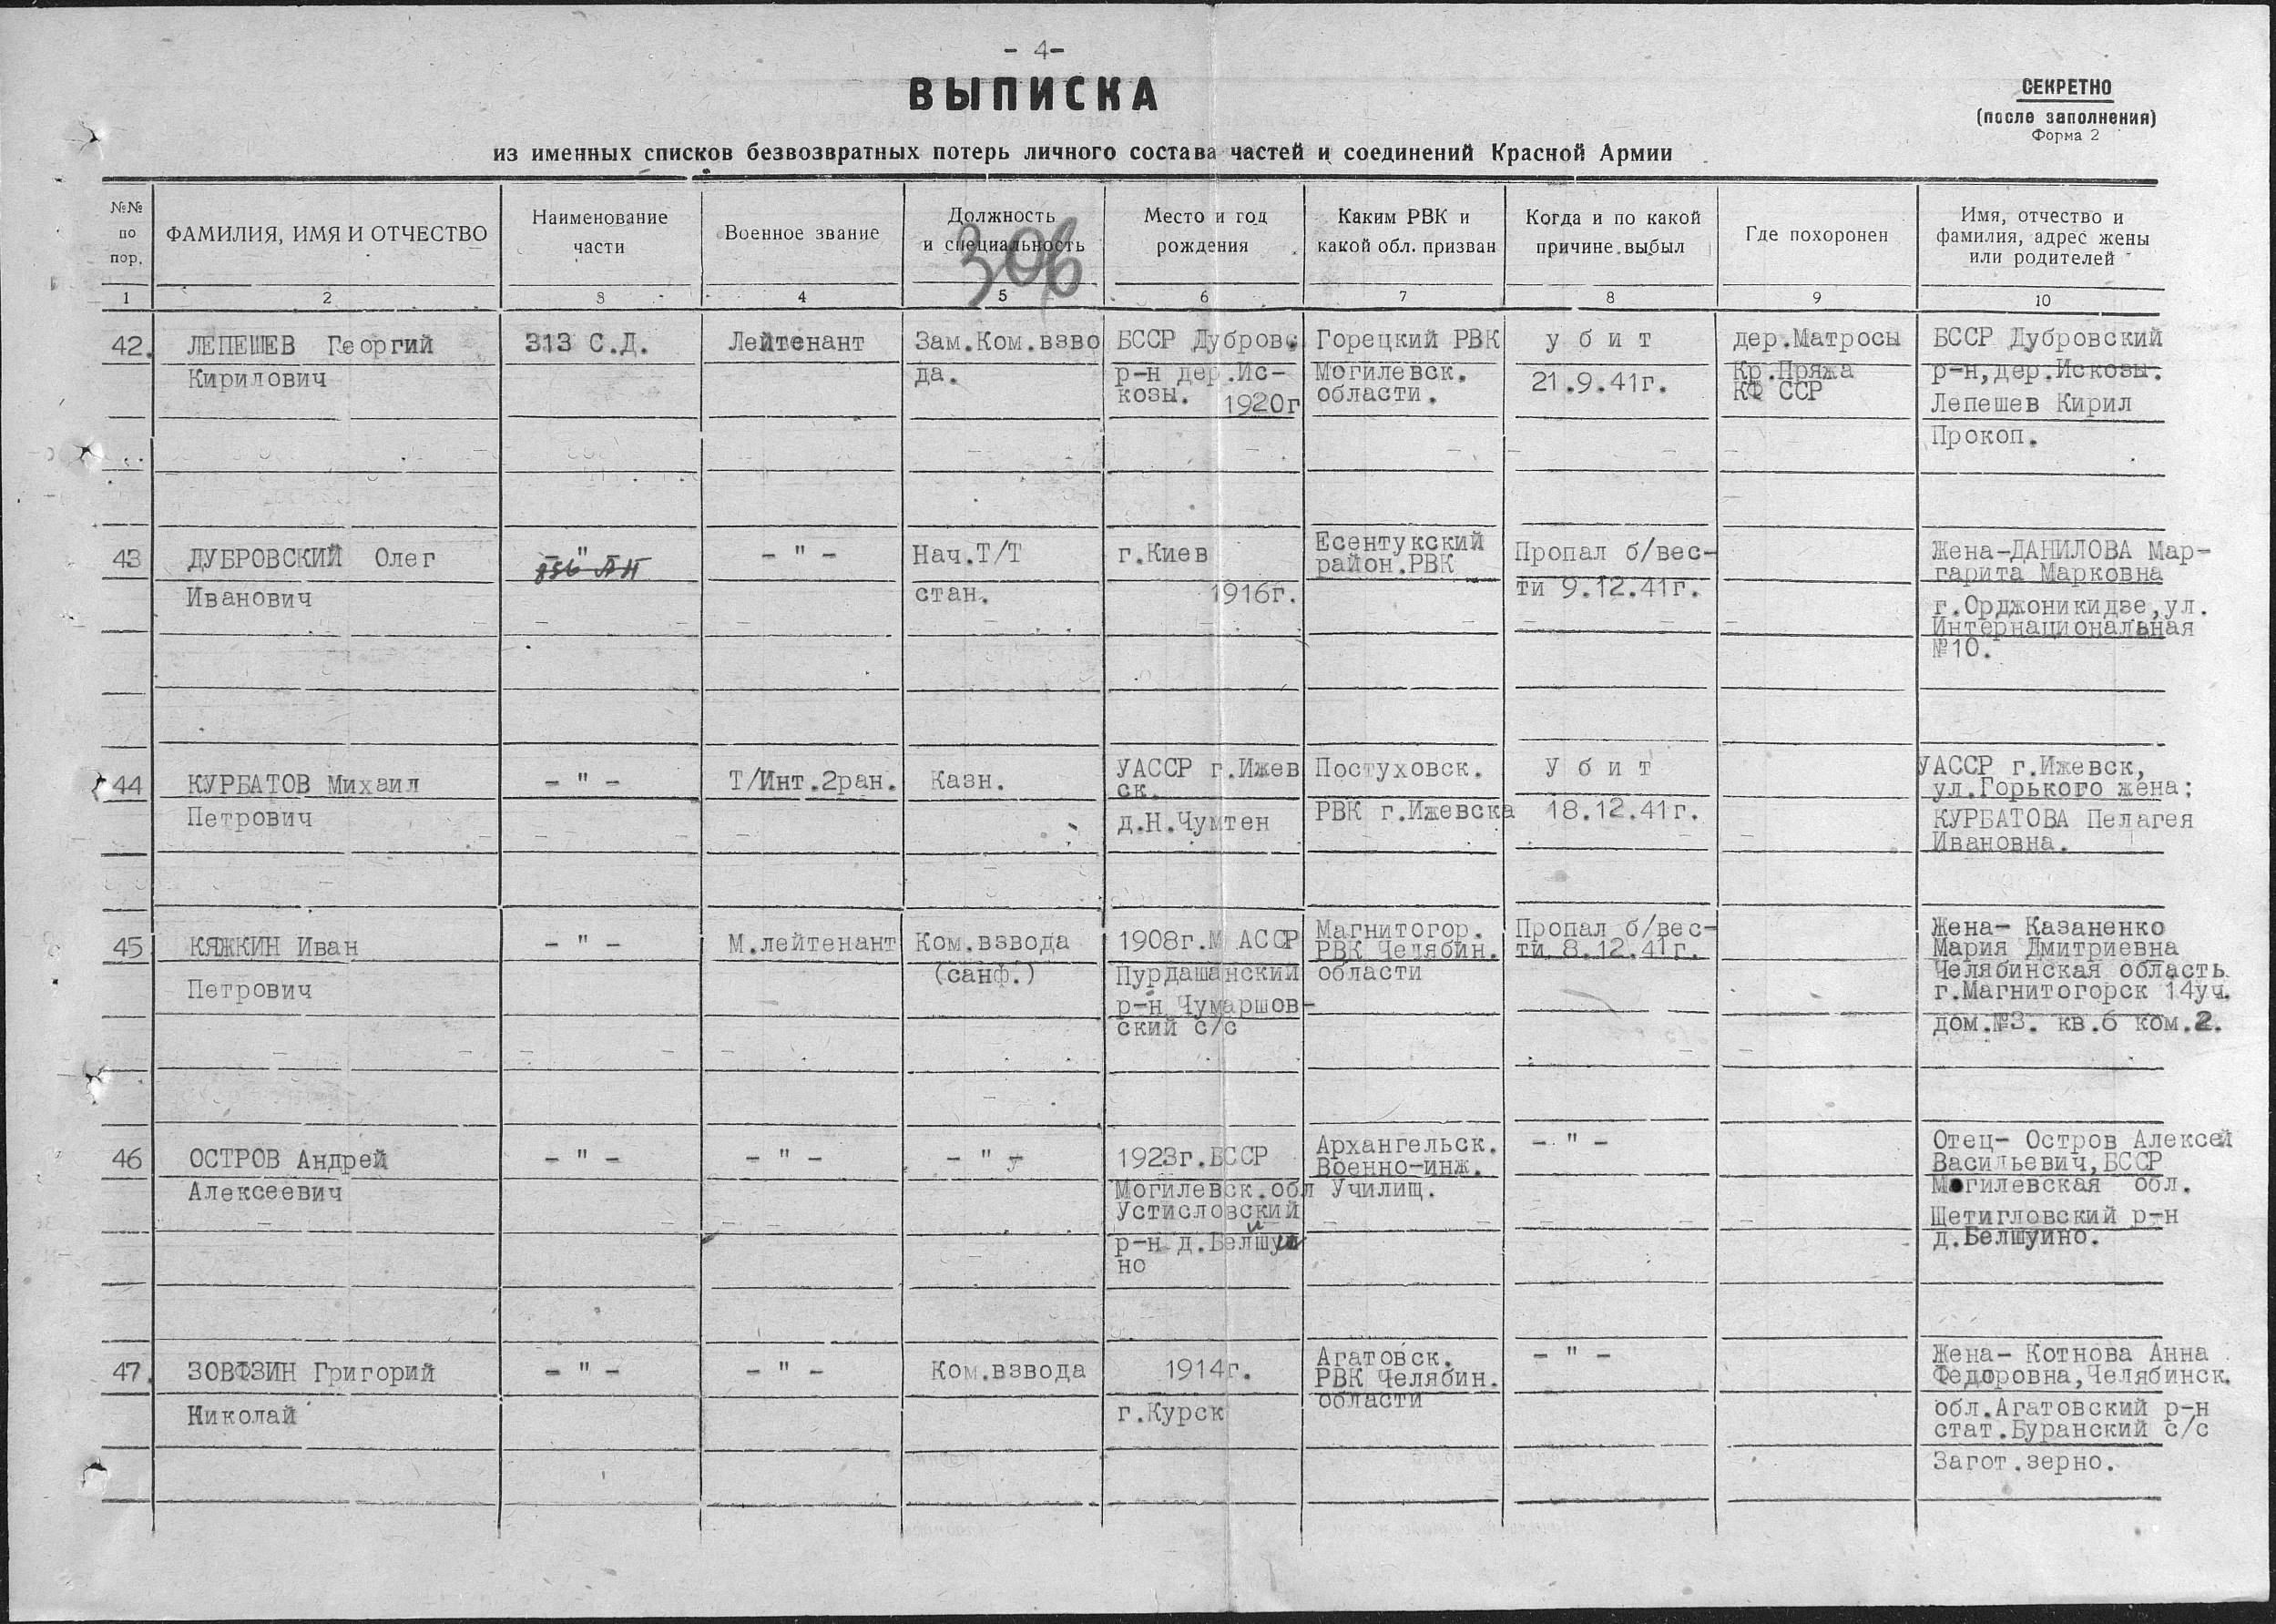 - 4-
ВЫПИСКА
СЕКРЕТНО
(после заполнения)
Форма 2
из именных списков безвозвратных потерь личного состава частей и соединений Красной Армии
№№
по
пор.
ФАМИЛИЯ, ИМЯ И ОТЧЕСТВО
Наименование
части
Военное звание
Должность
и специальность
306
Место и год
рождения
Каким РВК и
какой обл. призван
Когда и по какой
причине выбыл
Где похоронен
Имя, отчество и
фамилия, адрес жены
или родителей
1 2 3 4 5 6 7 8 9 10
42.
ЛЕПЕШЕВ Георгий
Кирилович
313 С.Д.
Лейтенант
Зам.Ком.взво
да.
БССР Дубровс
р-н дер.Ис-
козы.
1920г
Горецкий РВК
Могилевск.
области.
у б и т
21.9.41г.
дер.Матросы
Кр.Пряжа
КФ ССР
БССР Дубровский
р-н,дер.Искозы.
Лепешев Кирил
Прокоп.
43
ДУБРОВСКИЙ Олег
Иванович
- " -
856 АП
- " -
Нач.Т/Т
стан.
г.Киев
1916г.
Есентукский
район.РВК
Пропал б/вес-
ти 9.12.41г.
Жена-ДАНИЛОВА Мар-
гарита Марковна
г.Орджоникидзе,ул.
Интернациональная
№10.
44
КУРБАТОВ Михаил
Петрович
- " -
Т/Инт.2ран.
Казн.
УАССР г.Ижев
ск.
д.Н.Чумтен
Постуховск.
РВК г.Ижевска
У б и т
18.12.41г.
УАССР г.Ижевск,
ул.Горького жена:
КУРБАТОВА Пелагея
Ивановна.
45
КЯЖКИН Иван
Петрович
- " -
М.лейтенант
Ком.взвода
(санф.)
1908г.М АССР
Пурдашанский
р-н Чумаршов-
ский с/с
Магнитогор.
РВК Челябин.
области
Пропал б/вес-
ти 8.12.41г.
Жена- Казаненко
Мария Дмитриевна
Челябинская область
г.Магнитогорск 14уч.
дом.№3. кв.6 ком.2.
46
ОСТРОВ Андрей
Алексеевич
- " -
- " -
- " -
1923г.БССР
Могилевск.обл
Устисловский
р-н д.Белшуи
но
Архангельск.
Военно-инж.
Училищ.
- " -
Отец- Остров Алексей
Васильевич,БССР
Могилевская обл.
Щетигловский р-н
д.Белшуино.
47.
ЗОВФЗИН Григорий
Николай
- " -
- " -
Ком.взвода
1914г.
г.Курск
Агатовск.
РВК Челябин.
области
- " -
Жена- Котнова Анна
Федоровна,Челябинск.
обл.Агатовский р-н
стат.Буранский с/с
Загот.зерно.